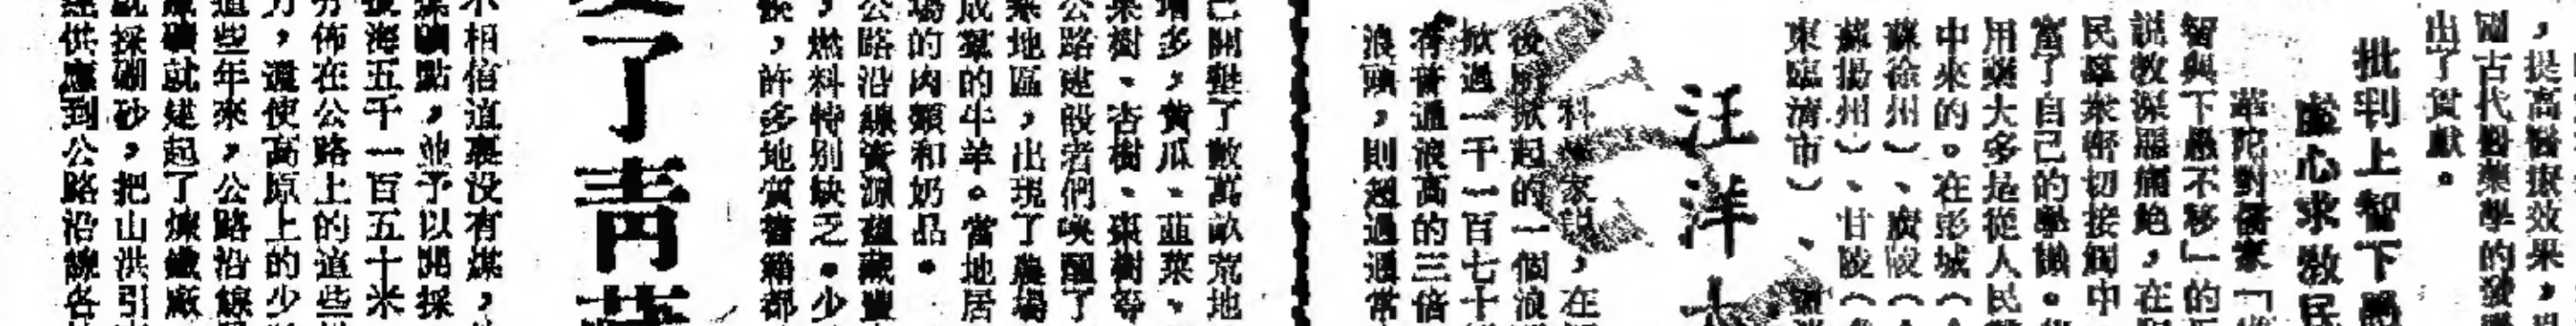 ，提高醫療效果，
國古代醫藥學的發
出了貢獻。
批判上智下愚
虛心求教民
華陀對儒家「
智與下愚不移」的
説教深惡痛絶，在
民羣衆密切接觸中
富了自己的學識。
用藥大多是從人民
中來的。在彭城（
蘇徐州）、廣陵（
蘇揚州）、甘陵（
東臨清市）、
汪洋
科學家説，在
後掀起的一個浪
掀過一千一百七十
有普通浪高的三倍
浪頭，則超過通常
已開墾了數萬畝荒地
增多，黄瓜、韮菜、
果樹、杏樹、棗樹等
公路建設者們喚醒了
來地區，出現了農場
成羣的牛羊。當地居
場的肉類和奶品。
公路沿線資源蘊藏豐
，燃料特别缺乏。少
，許多地質
了青藏
不相信道裏没有煤，
礦點，並予以開採
拔海五千一百五十米
分佈在公路上的這些
力，還使高原上的少
這些年來，公路沿線
礦就建起了煉鐵廠
就採硼砂，把山洪引
供應到公路沿線各